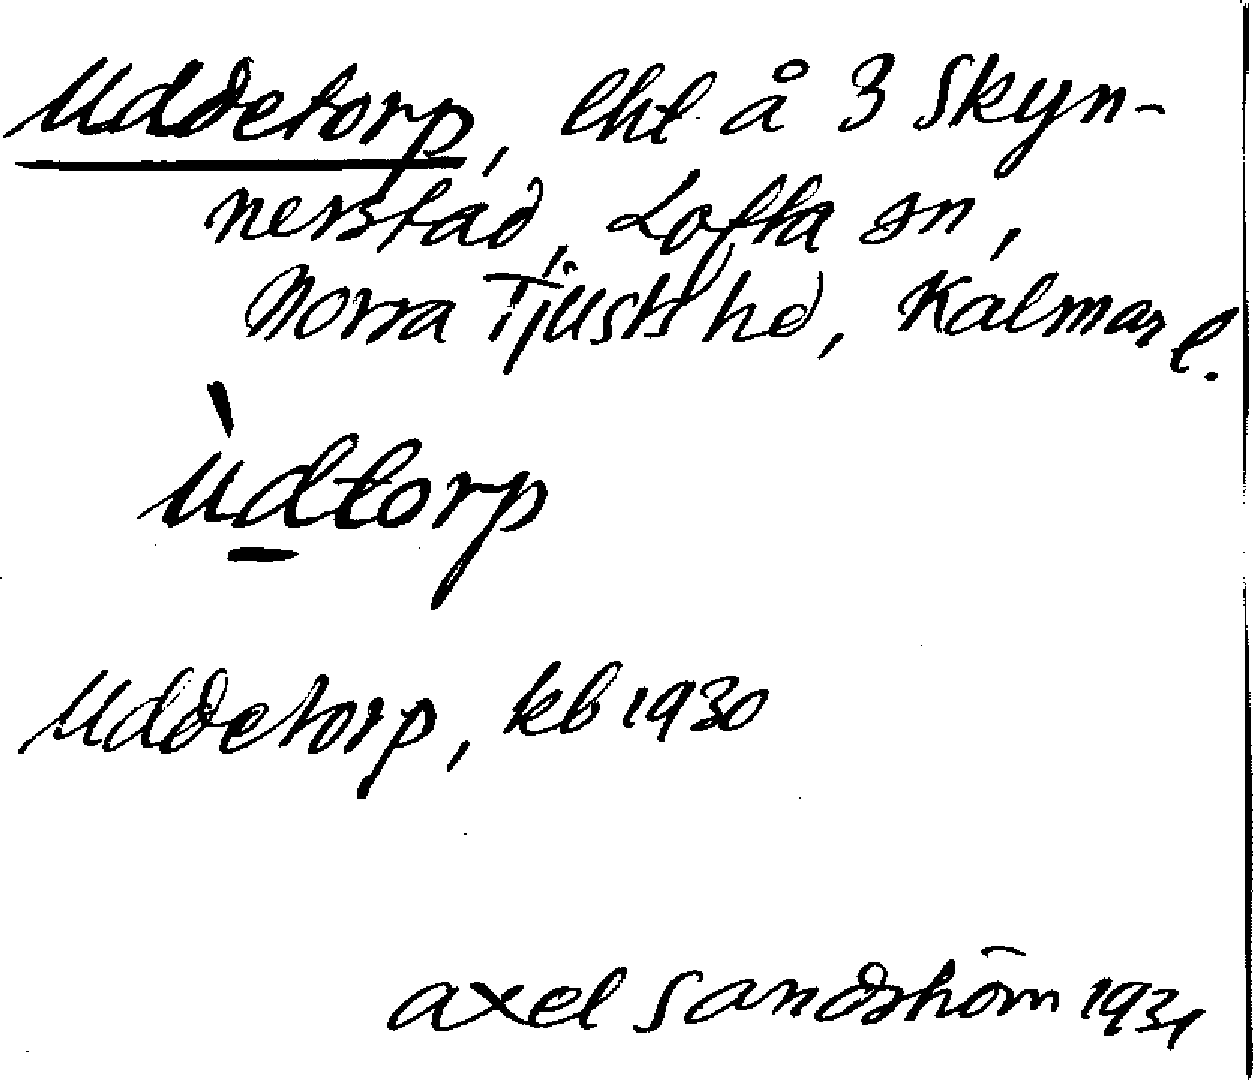 Uddetorp, lht å 3 Skyn-
nerstad, Lofta sn,
Norra Tjusts hd, Kalmar l.
ùdtorp
Uddetorp, kb 1930
Axel Sandström 1931